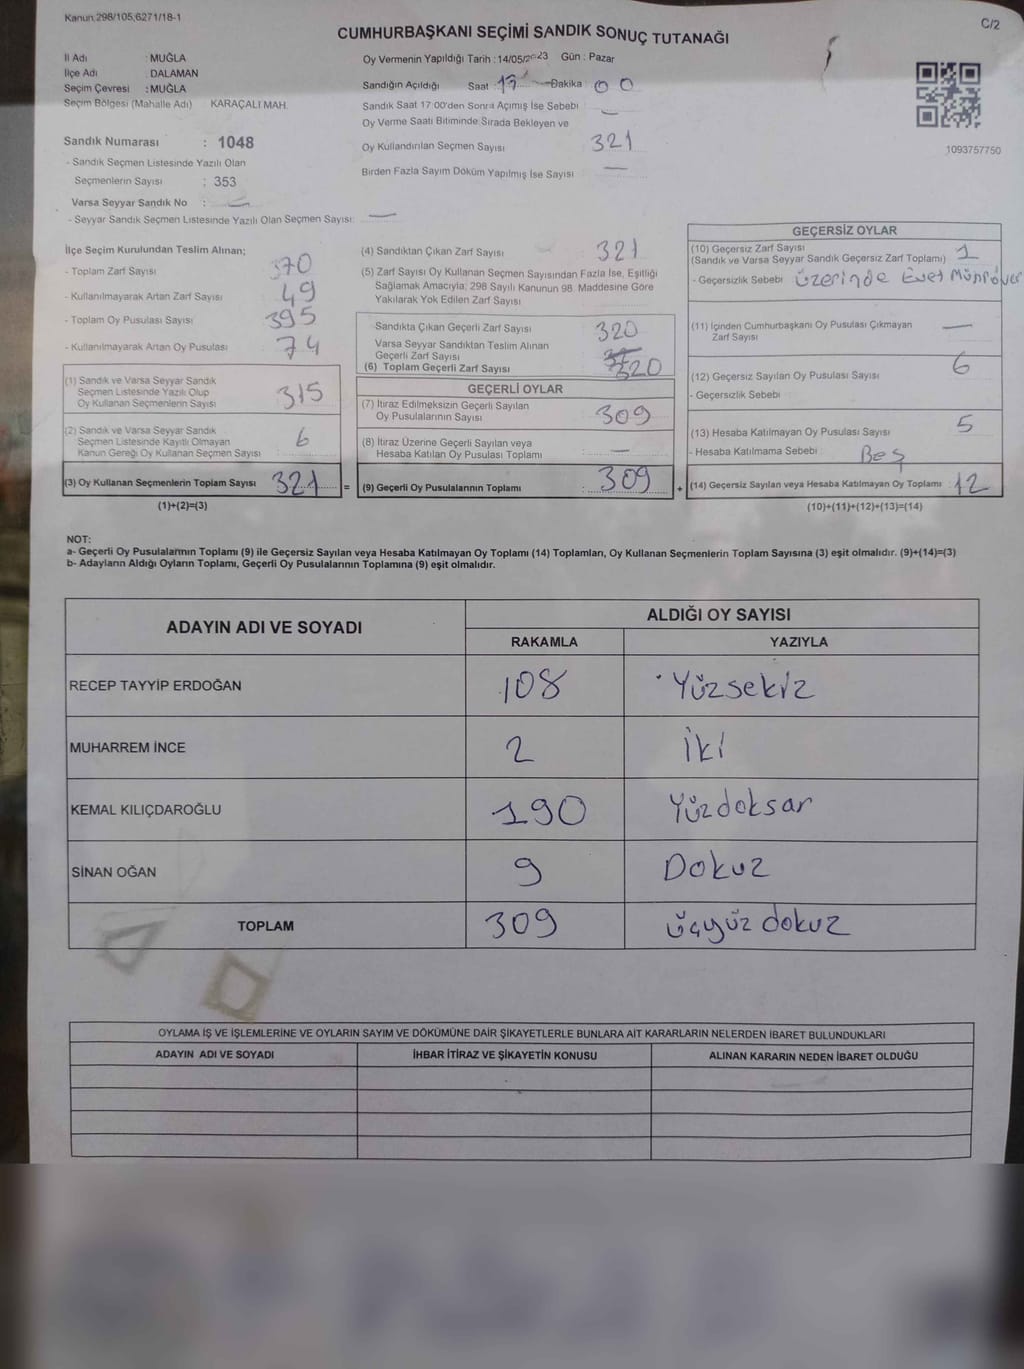 Kanun:298/105;6271/18-1
C/2
CUMHURBAŞKANI SEÇİMİ SANDIK SONUÇ TUTANAĞI
İl Adı : MUĞLA
İlçe Adı : DALAMAN
Seçim Çevresi : MUĞLA
Seçim Bölgesi (Mahalle Adı) KARAÇALI MAH.
Oy Vermenin Yapıldığı Tarih : 14/05/2023 Gün : Pazar
Sandığın Açıldığı Saat : 17 Dakika : 00
Sandık Saat 17:00'den Sonra Açımış İse Sebebi —
Oy Verme Saati Bitiminde Sırada Bekleyen ve
Oy Kullandırılan Seçmen Sayısı 321
Birden Fazla Sayım Döküm Yapılmış İse Sayısı —
1093757750
Sandık Numarası : 1048
- Sandık Seçmen Listesinde Yazılı Olan
Seçmenlerin Sayısı : 353
Varsa Seyyar Sandık No : —
- Seyyar Sandık Seçmen Listesinde Yazılı Olan Seçmen Sayısı: —
İlçe Seçim Kurulundan Teslim Alınan;
- Toplam Zarf Sayısı 370
- Kullanılmayarak Artan Zarf Sayısı : 49
- Toplam Oy Pusulası Sayısı 395
- Kullanılmayarak Artan Oy Pusulası : 74
(1) Sandık ve Varsa Seyyar Sandık
Seçmen Listesinde Yazılı Olup
Oy Kullanan Seçmenlerin Sayısı 315
(2) Sandık ve Varsa Seyyar Sandık
Seçmen Listesinde Kayıtlı Olmayan
Kanun Gereği Oy Kullanan Seçmen Sayısı 6
(3) Oy Kullanan Seçmenlerin Toplam Sayısı 321 =
(1)+(2)=(3)
(4) Sandıktan Çıkan Zarf Sayısı 321
(5) Zarf Sayısı Oy Kullanan Seçmen Sayısından Fazla İse, Eşitliği
Sağlamak Amacıyla; 298 Sayılı Kanunun 98. Maddesine Göre
Yakılarak Yok Edilen Zarf Sayısı
Sandıkta Çıkan Geçerli Zarf Sayısı 320
Varsa Seyyar Sandıktan Teslim Alınan
Geçerli Zarf Sayısı
(6) Toplam Geçerli Zarf Sayısı 320
GEÇERLİ OYLAR
(7) İtiraz Edilmeksizin Geçerli Sayılan
Oy Pusulalarının Sayısı 309
(8) İtiraz Üzerine Geçerli Sayılan veya
Hesaba Katılan Oy Pusulası Toplamı : —
(9) Geçerli Oy Pusulalarının Toplamı : 309 +
GEÇERSİZ OYLAR
(10) Geçersiz Zarf Sayısı 1
(Sandık ve Varsa Seyyar Sandık Geçersiz Zarf Toplamı)
- Geçersizlik Sebebi : üzerinde Evet Mühürü var
(11) İçinden Cumhurbaşkanı Oy Pusulası Çıkmayan —
Zarf Sayısı
(12) Geçersiz Sayılan Oy Pusulası Sayısı 6
- Geçersizlik Sebebi :
(13) Hesaba Katılmayan Oy Pusulası Sayısı 5
- Hesaba Katılmama Sebebi : Beş
(14) Geçersiz Sayılan veya Hesaba Katılmayan Oy Toplamı : 12
(10)+(11)+(12)+(13)=(14)
NOT:
a- Geçerli Oy Pusulalarının Toplamı (9) ile Geçersiz Sayılan veya Hesaba Katılmayan Oy Toplamı (14) Toplamları, Oy Kullanan Seçmenlerin Toplam Sayısına (3) eşit olmalıdır. (9)+(14)=(3)
b- Adayların Aldığı Oyların Toplamı, Geçerli Oy Pusulalarının Toplamına (9) eşit olmalıdır.
ADAYIN ADI VE SOYADI ALDIĞI OY SAYISI
RAKAMLA YAZIYLA
RECEP TAYYİP ERDOĞAN 108 Yüzsekiz
MUHARREM İNCE 2 İki
KEMAL KILIÇDAROĞLU 190 Yüzdoksan
SİNAN OĞAN 9 Dokuz
TOPLAM 309 üçyüz dokuz
OYLAMA İŞ VE İŞLEMLERİNE VE OYLARIN SAYIM VE DÖKÜMÜNE DAİR ŞİKAYETLERLE BUNLARA AİT KARARLARIN NELERDEN İBARET BULUNDUKLARI
ADAYIN ADI VE SOYADI İHBAR İTİRAZ VE ŞİKAYETİN KONUSU ALINAN KARARIN NEDEN İBARET OLDUĞU